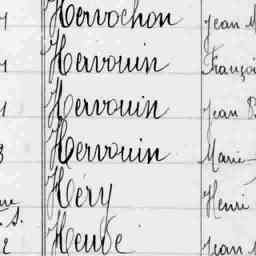 Hervochon Jean M
Hervouin François
Hervouin Jean B
Hervouin Marie
Héry Henri
Heudé Jean